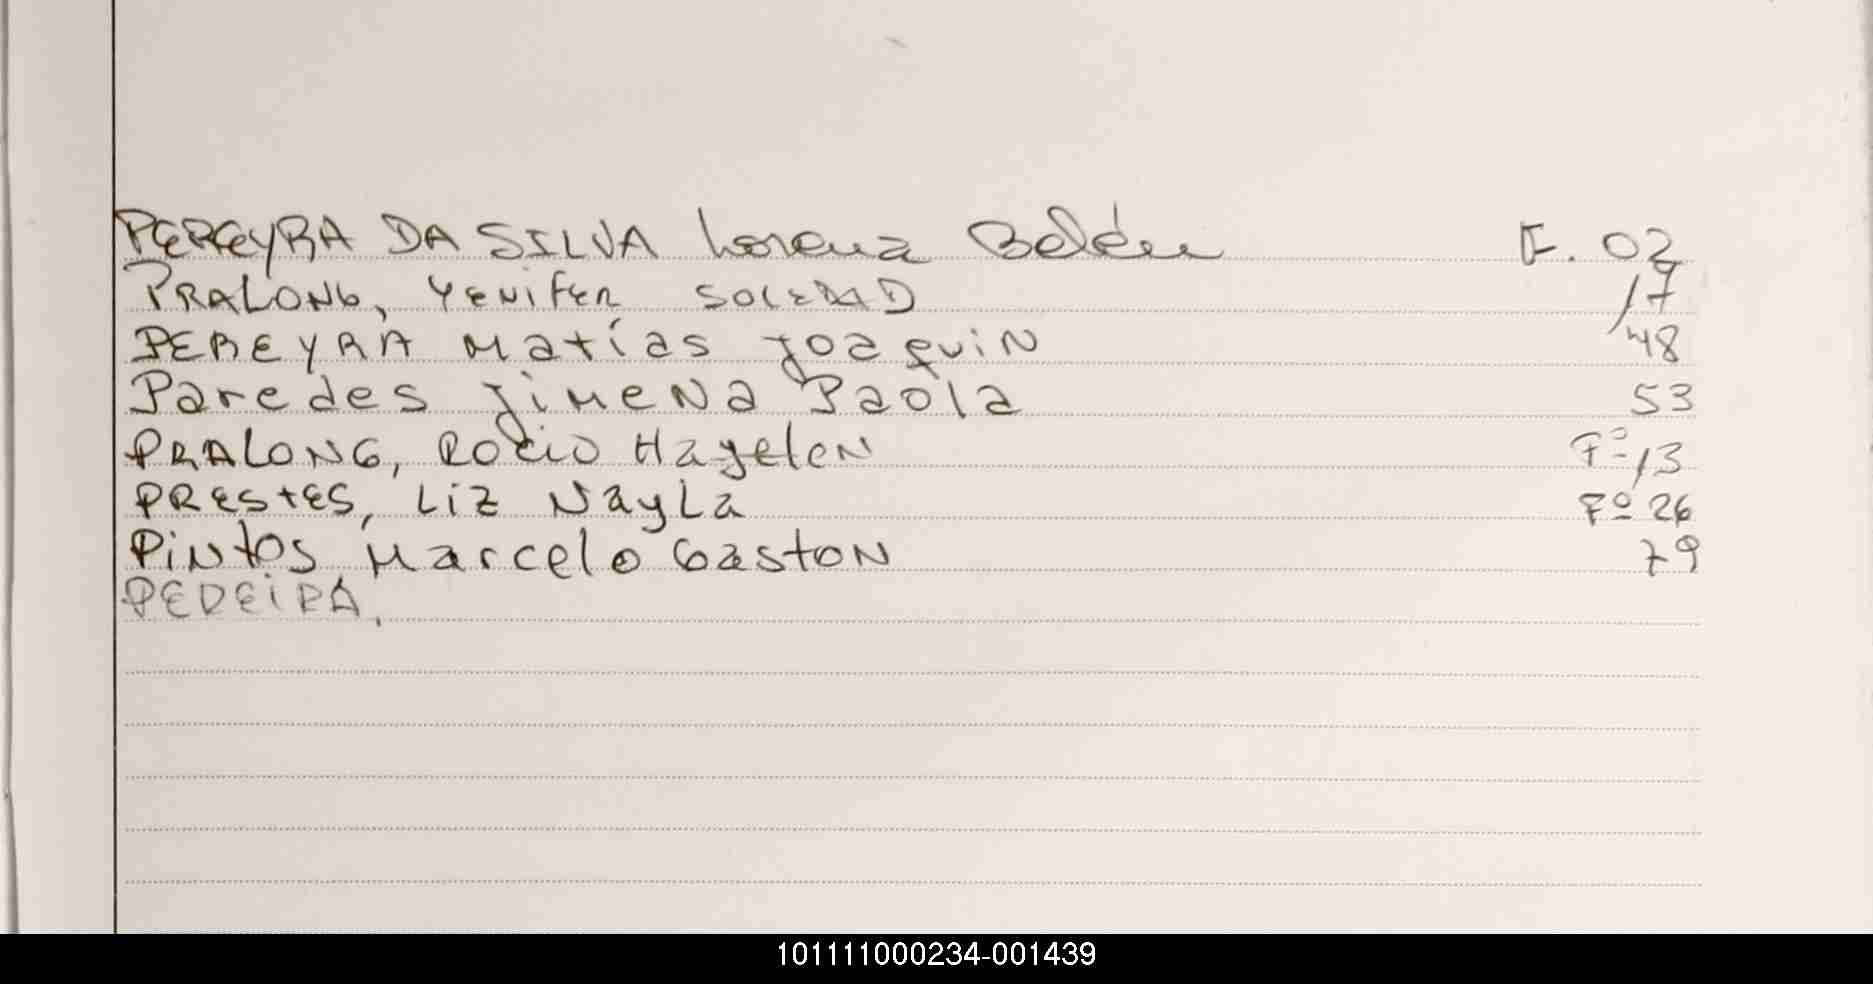 PEREYRA DA SILVA Lorena Belén F. 02
PRALONG, YENIFER SOLEDAD 17
PEREYRA Matías Joaquin 48
Paredes Jimena Paola 53
PRALONG, ROCIO Hayelen Fº 13
PRESTES, Liz Nayla Fº 26
Pintos Marcelo Gaston 79
PEREIRA,
101111000234-001439